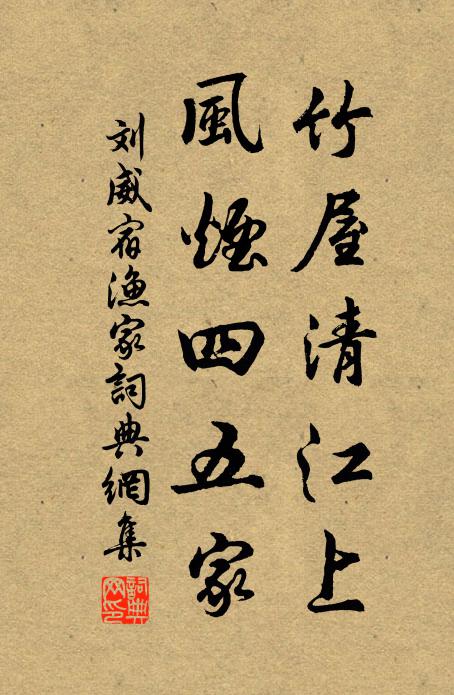 竹屋清江上
風煙四五家
刘威宿漁家詞典網集
詞典网印